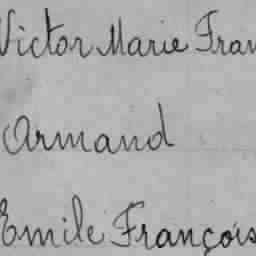 Victor Marie Fran
Armand
Emile François